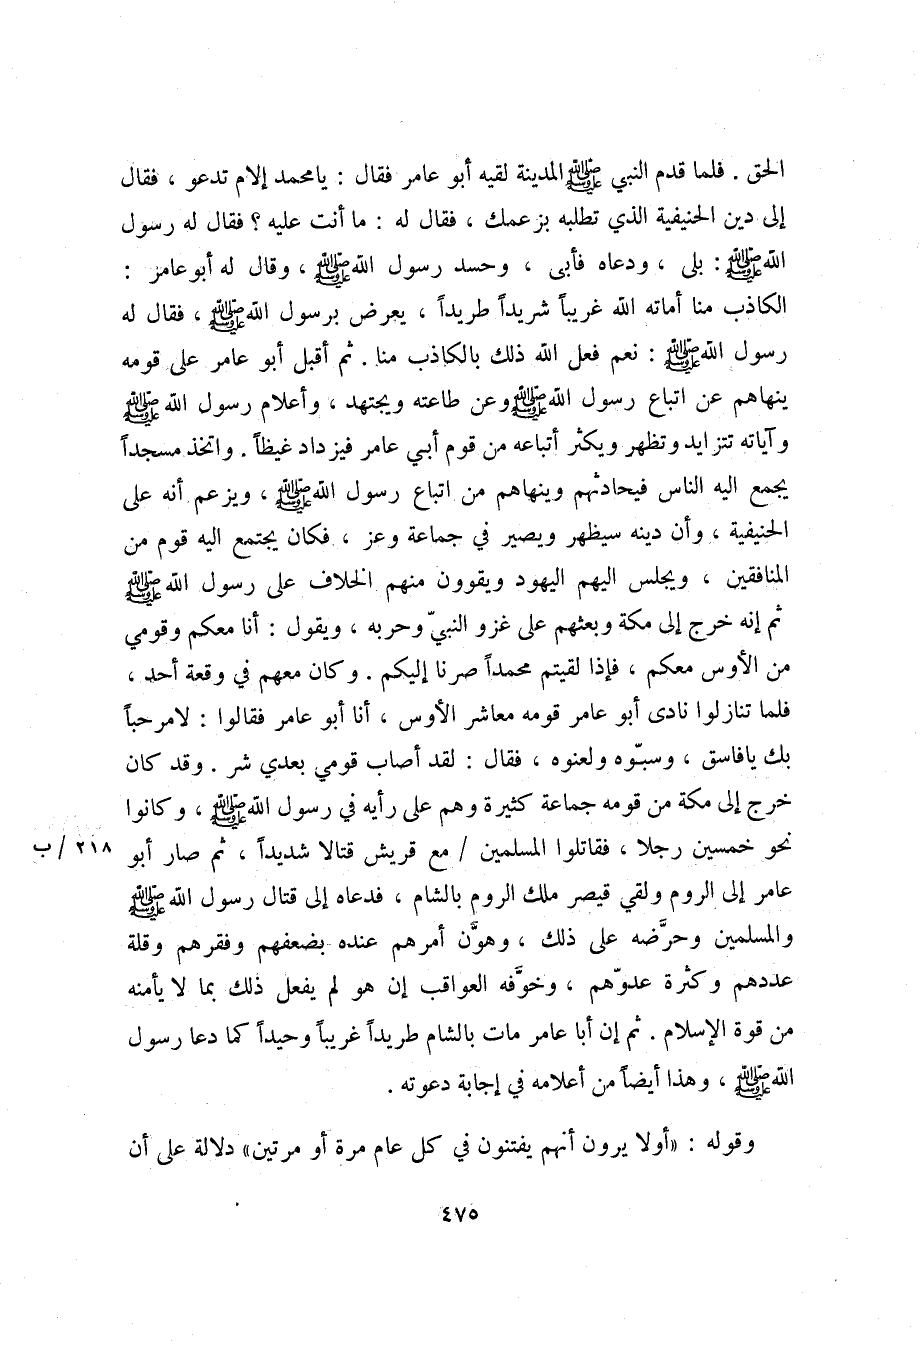 الحق . فلما قدم النبي ﷺ المدينة لقيه أبو عامر فقال : يامحمد إلام تدعو ، فقال
إلى دين الحنيفية الذي تطلبه بزعمك ، فقال له : ما أنت عليه ؟ فقال له رسول
الله ﷺ : بلى ، ودعاه فأبى ، وحسد رسول الله ﷺ ، وقال له أبو عامر :
الكاذب منا أماته الله غريباً شريداً طريداً ، يعرض برسول الله ﷺ ، فقال له
رسول الله ﷺ : نعم فعل الله ذلك بالكاذب منا . ثم أقبل أبو عامر على قومه
ينهاهم عن اتباع رسول الله ﷺ وعن طاعته ويجتهد ، وأعلام رسول الله ﷺ
وآياته تتزايد وتظهر ويكثر أتباعه من قوم أبي عامر فيزداد غيظاً . واتخذ مسجداً
يجمع اليه الناس فيحادثهم وينهاهم من اتباع رسول الله ﷺ ، ويزعم أنه على
الحنيفية ، وأن دينه سيظهر ويصير في جماعة وعز ، فكان يجتمع اليه قوم من
المنافقين ، ويجلس اليهم اليهود ويقوون منهم الخلاف على رسول الله ﷺ
ثم إنه خرج إلى مكة وبعثهم على غزو النبيّ وحربه ، ويقول : أنا معكم وقومي
من الأوس معكم ، فإذا لقيتم محمداً صرنا إليكم . وكان معهم في وقعة أحد ،
فلما تنازلوا نادى أبو عامر قومه معاشر الأوس ، أنا أبو عامر فقالوا : لامرحباً
بك يافاسق ، وسبّوه ولعنوه ، فقال : لقد أصاب قومي بعدي شر . وقد كان
خرج إلى مكة من قومه جماعة كثيرة وهم على رأيه في رسول الله ﷺ ، وكانوا
نحو خمسين رجلا ، فقاتلوا المسلمين / مع قريش قتالا شديداً ، ثم صار أبو ٢١٨ / ب
عامر إلى الروم ولقي قيصر ملك الروم بالشام ، فدعاه إلى قتال رسول الله ﷺ
والمسلمين وحرَّضه على ذلك ، وهوَّن أمرهم عنده بضعفهم وفقرهم وقلة
عددهم وكثرة عدوّهم ، وخوَّفه العواقب إن هو لم يفعل ذلك بما لا يأمنه
من قوة الإسلام . ثم إن أبا عامر مات بالشام طريداً غريباً وحيداً كما دعا رسول
الله ﷺ ، وهذا أيضاً من أعلامه في إجابة دعوته .
وقوله : «أولا يرون أنهم يفتنون في كل عام مرة أو مرتين» دلالة على أن
٤٧٥